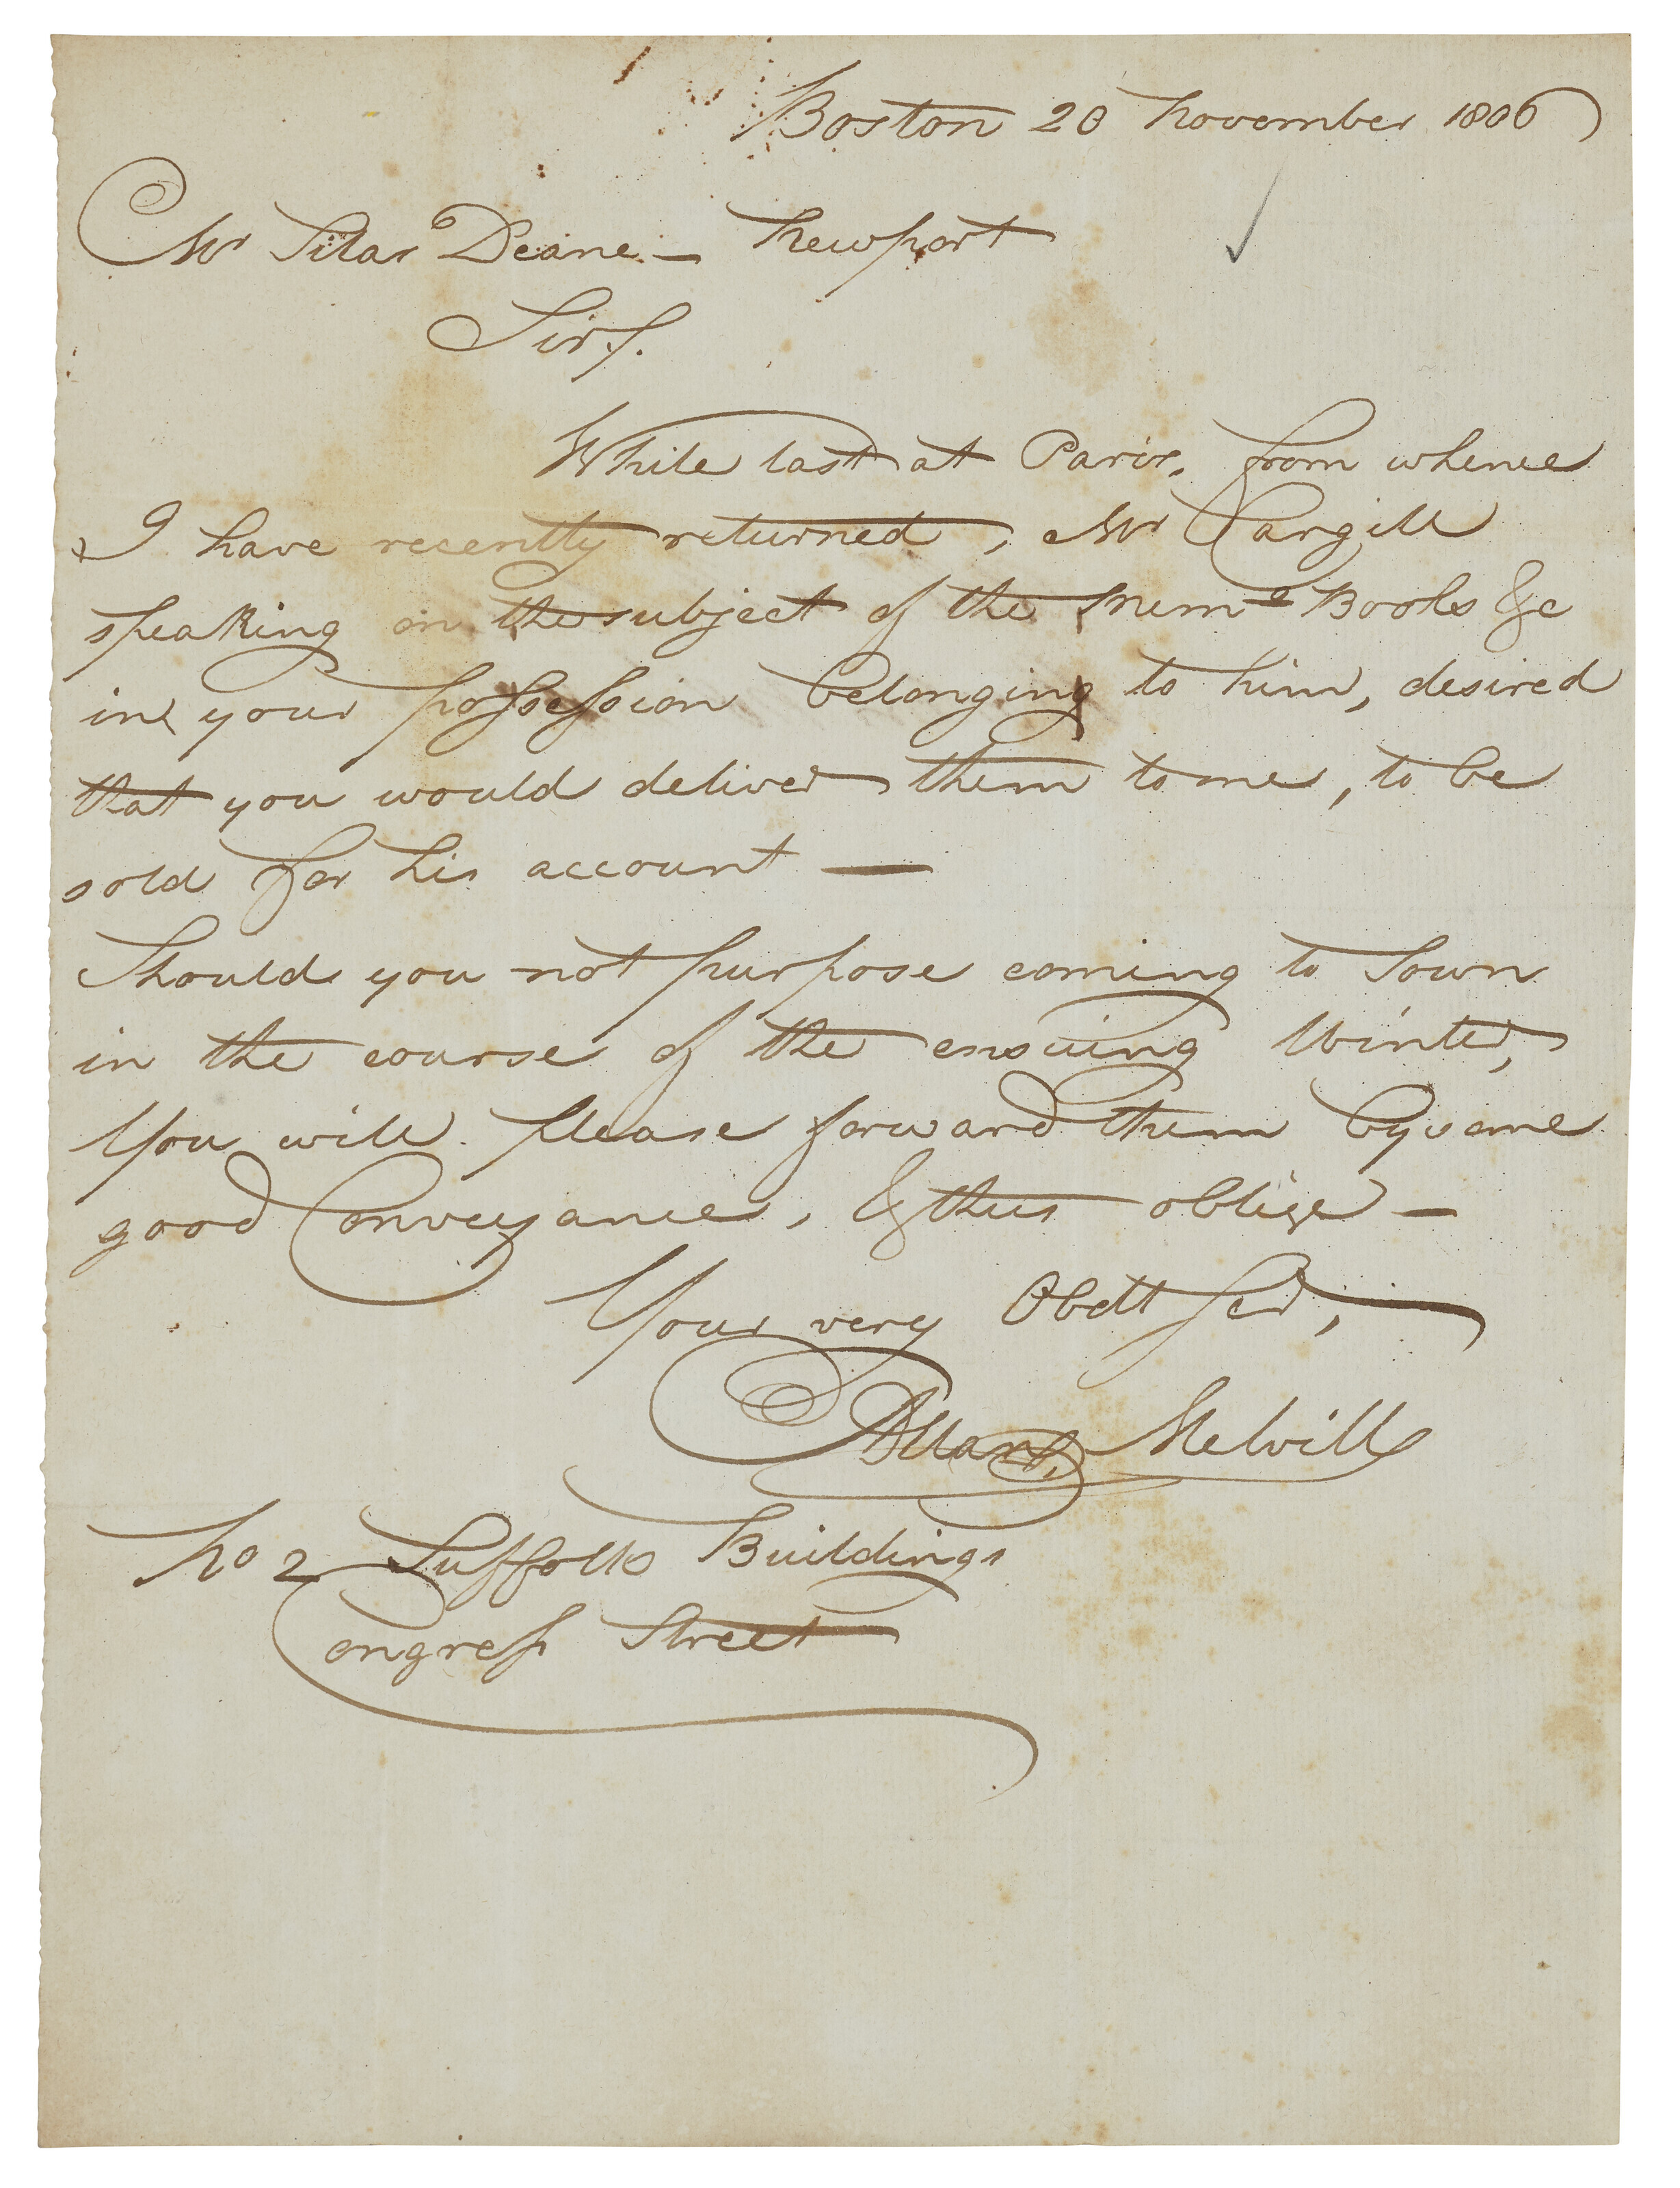 Boston 20 November 1806
Mr Silas Deane — Newport
Sir,
While last at Paris, from whence
I have recently returned, Mr Cargill
speaking on the subject of the Books &c
in your possession belonging to him, desired
that you would deliver them to me, to be
sold for his account —
Should you not purpose coming to Town
in the course of the ensuing Winter,
You will please forward them by some
good Conveyance, & thus oblige —
Your very Obdt Ser,
Allan Melvill
No 2 Suffolk Buildings
Congress Street